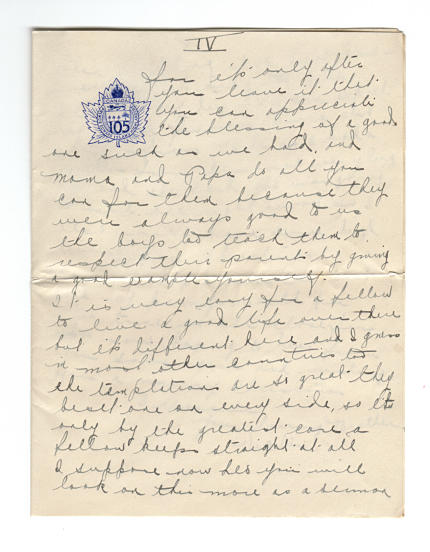 IV
for it's only after
you leave it that
you can appreciate
the blessing of a good
one such as we had, and
mama and Papa do all you
can for them because they
were always good to us
the boys too teach them to
respect their parent by giving
a good example yourself.
It is very easy for a fellow
to live a good life over there
but it's different here and I guess
in most other countries too
the temptations are so great they
beset one on every side, so its
only by the greatest care a
fellow keeps straight at all
I suppose now you will
look on this more as a sermon
CANADA
105